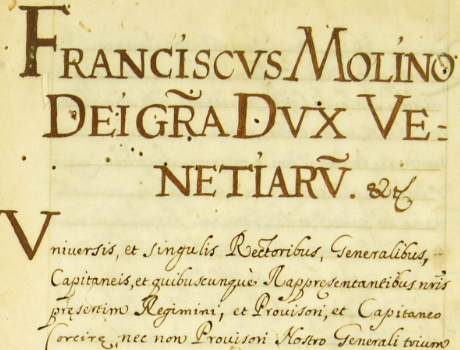 FRANCISCVS MOLINO
DEI GR̃A DVX VE=
NETIARṼ. &c̃
Vniversis, et singulis Rectoribus, Generalibus,
Capitaneis, et quibuscunquè Rappresentantibus nr̃is
presertim Regimini, et Provisori, et Capitaneo
Corcire, nec non Provisori Nostro Generali trium